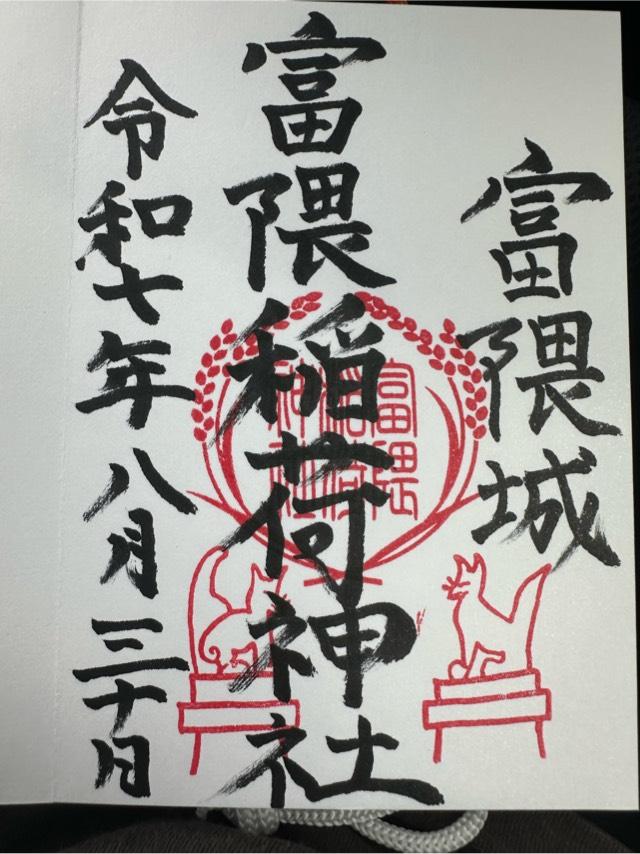 富隈城
富隈稲荷神社
令和七年八月三十日
富隈
稲荷
神社